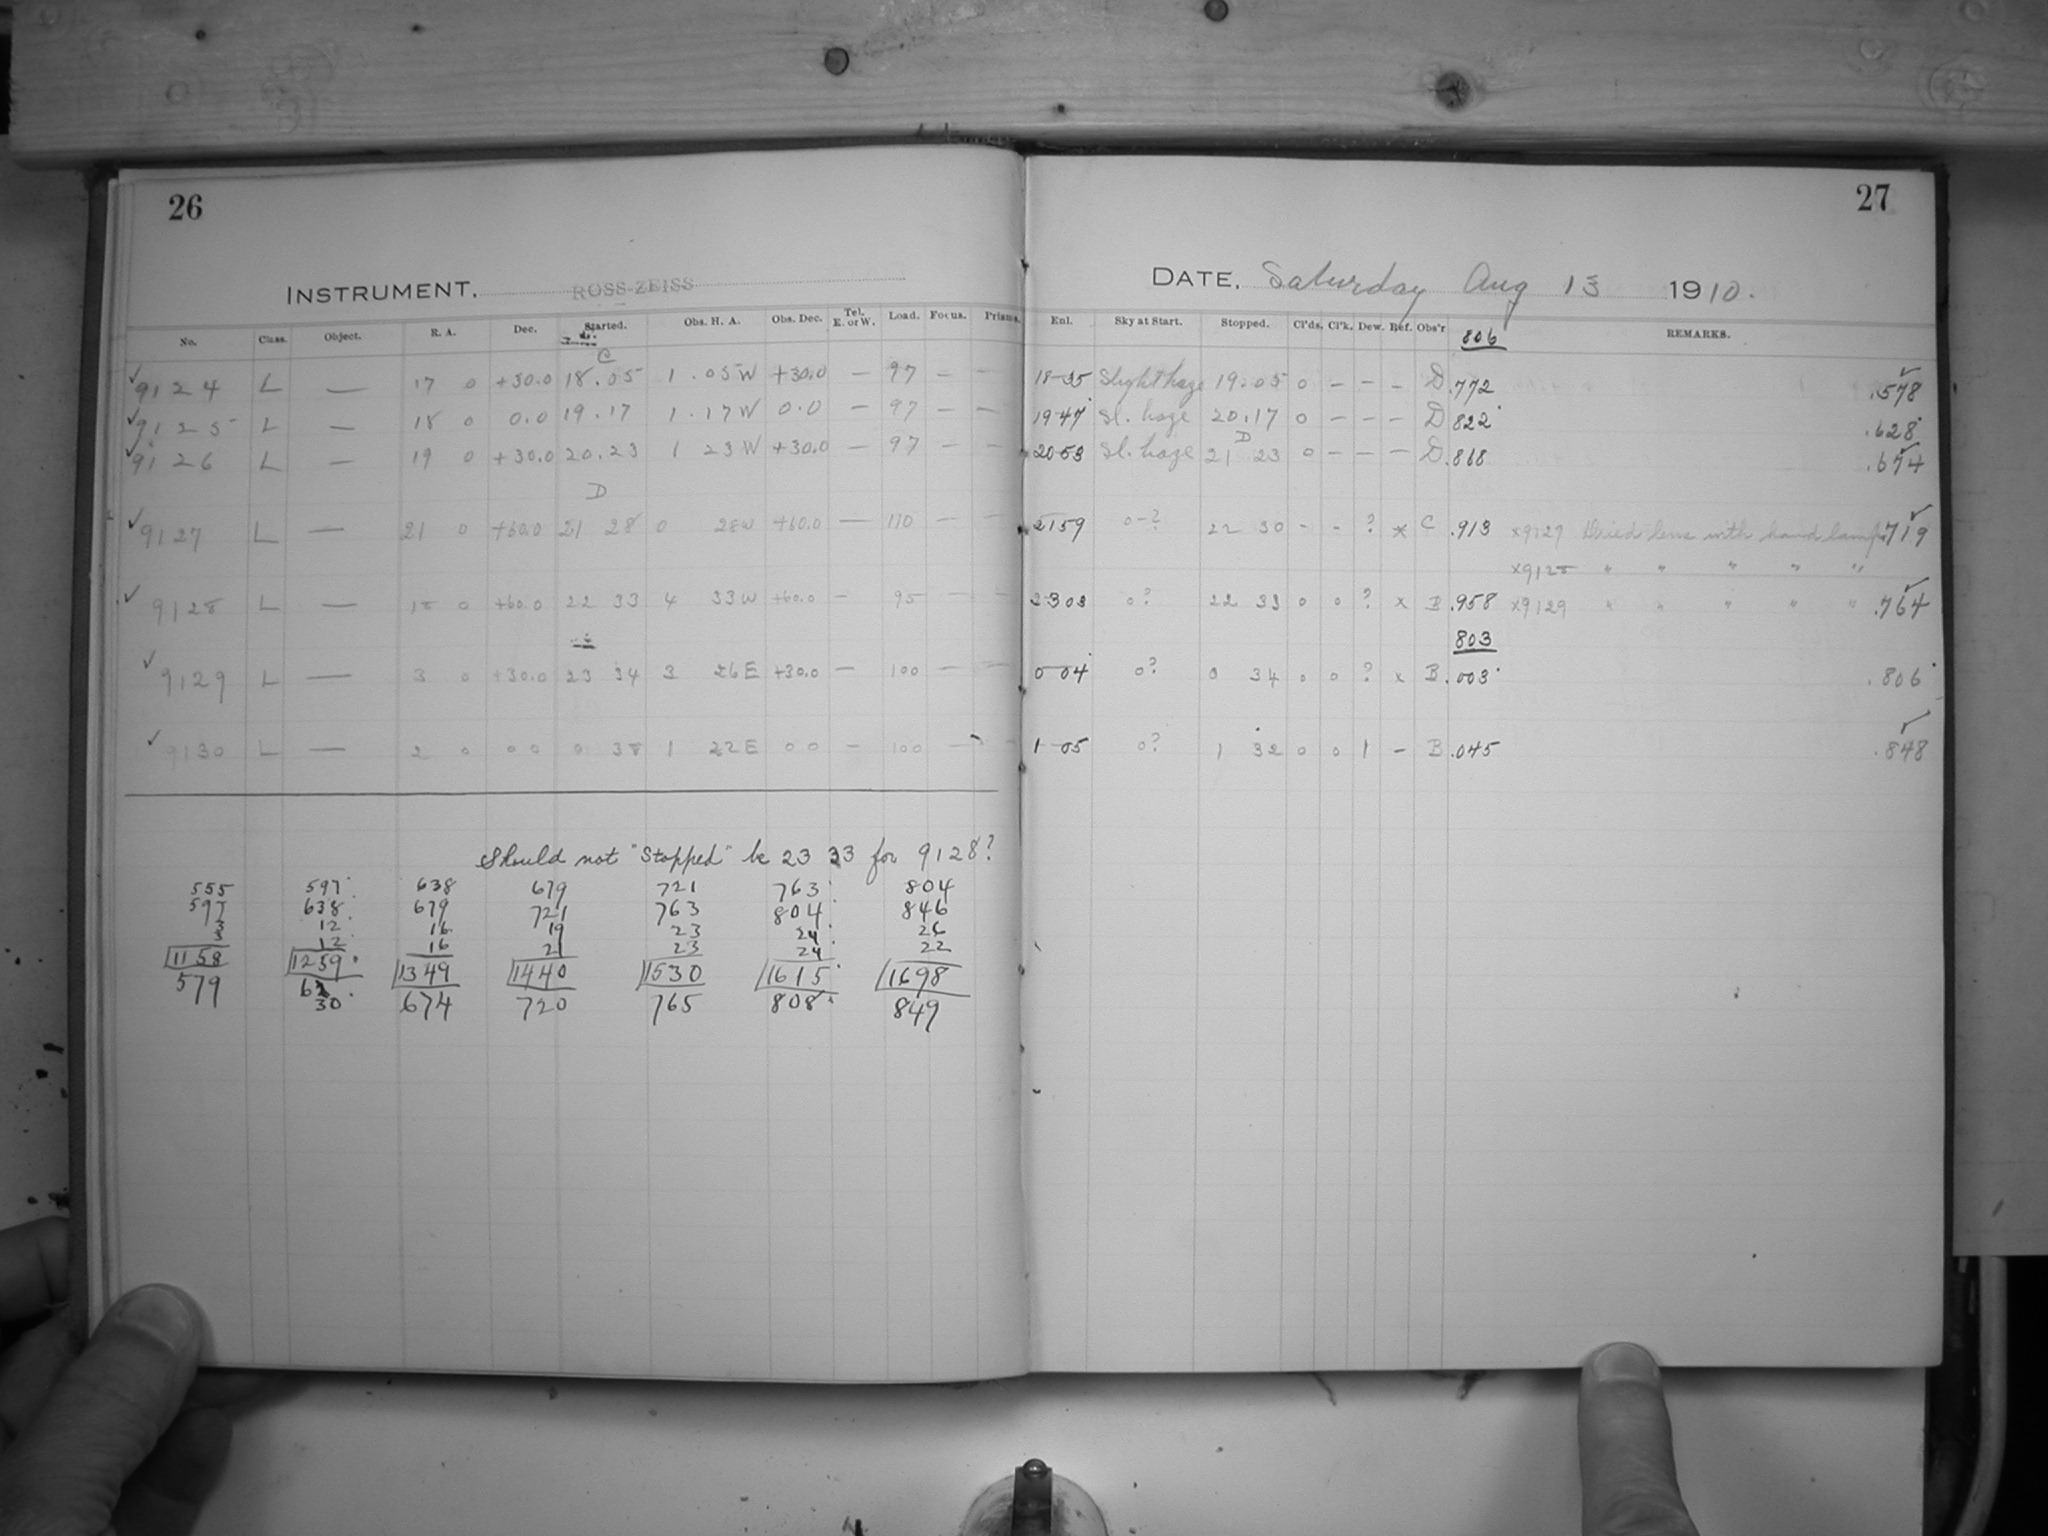 26
INSTRUMENT. ROSS-ZEISS
No. Class. Object. R. A. Dec. Started. Obs. H. A. Obs. Dec. Tel. E. or W. Load. Focus. Prisms.
C
✓ 9124 L — 17 0 +30.0 18.05 1.05W +30.0 — 97 — —
✓ 9125 L — 18 0 0.0 19.17 1.17W 0.0 — 97 — —
✓ 9126 L — 19 0 +30.0 20.23 1 23W +30.0 — 97 — —
D
✓ 9127 L — 21 0 +60.0 21 28 0 28W +60.0 — 110 — —
✓ 9128 L — 18 0 +60.0 22 33 4 33W +60.0 — 95 — —
✓ 9129 L — 3 0 +30.0 23 34 3 26E +30.0 — 100 — —
✓ 9130 L — 2 0 0 0 0 38 1 22E 0 0 — 100 — —
Should not "Stopped" be 23 33 for 9128?
555 597 638 679 721 763 804
597 638 679 721 763 804 846
3 12 16 19 23 24 26
3 12 16 21 23 24 22
1158 1259 1349 1440 1530 1615 1698
579 630 674 720 765 808 849
27
DATE, Saturday Aug 13 1910.
Enl. Sky at Start. Stopped. Cl'ds. Cl'k. Dew. Ref. Obs'r 806 REMARKS.
18-35 Slight haze 19.05 0 — — — D .772 .578 ✓
19 47 Sl. haze 20.17 0 — — — D 822 .628
D
20 53 Sl. haze 21 23 0 — — — D .868 .674 ✓
21 59 0-? 22 30 - - ? x C .913 x9127 Dried lens with hand lamp. .719 ✓
x9128 " " " " "
23 03 0? 22 33 0 0 ? x B .958 x9129 " " " " " .764 ✓
803
0 04 0? 0 34 0 0 ? x B .003 .806
1 05 0? 1 32 0 0 1 - B .045 .848 ✓